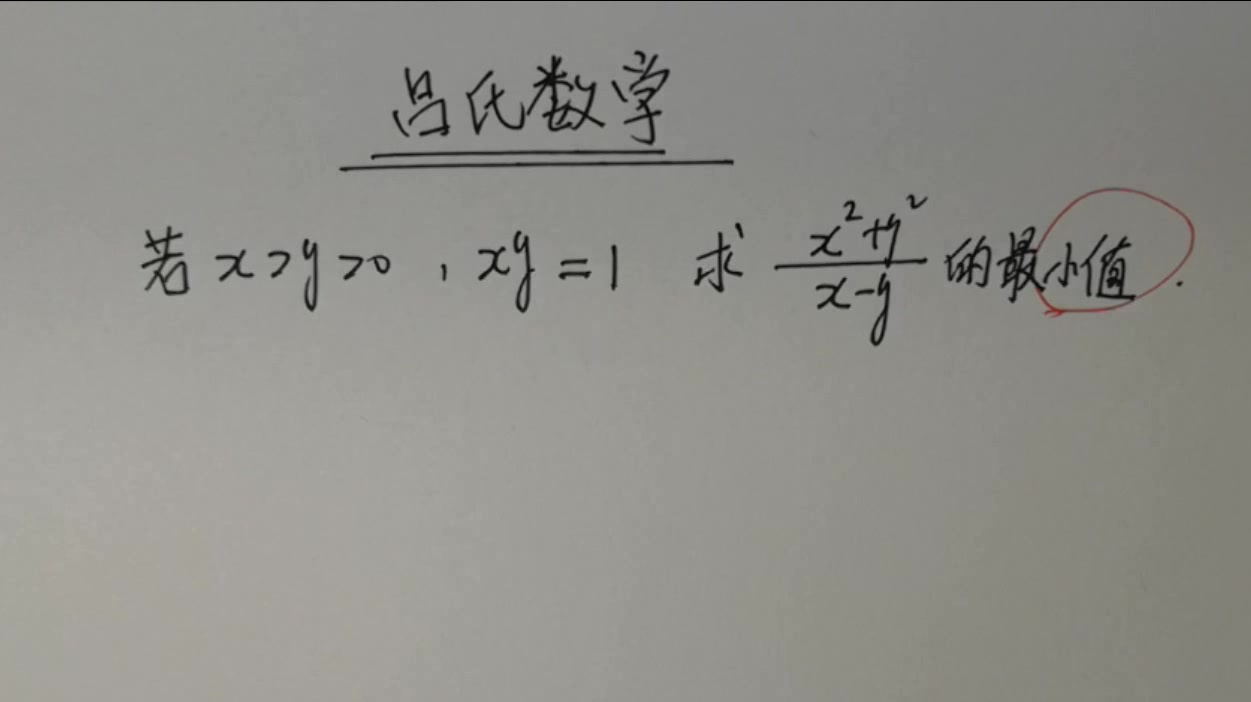 吕氏数学
若 x>y>0 , xy=1 求 \frac{x^2+y^2}{x-y} 的最小值.